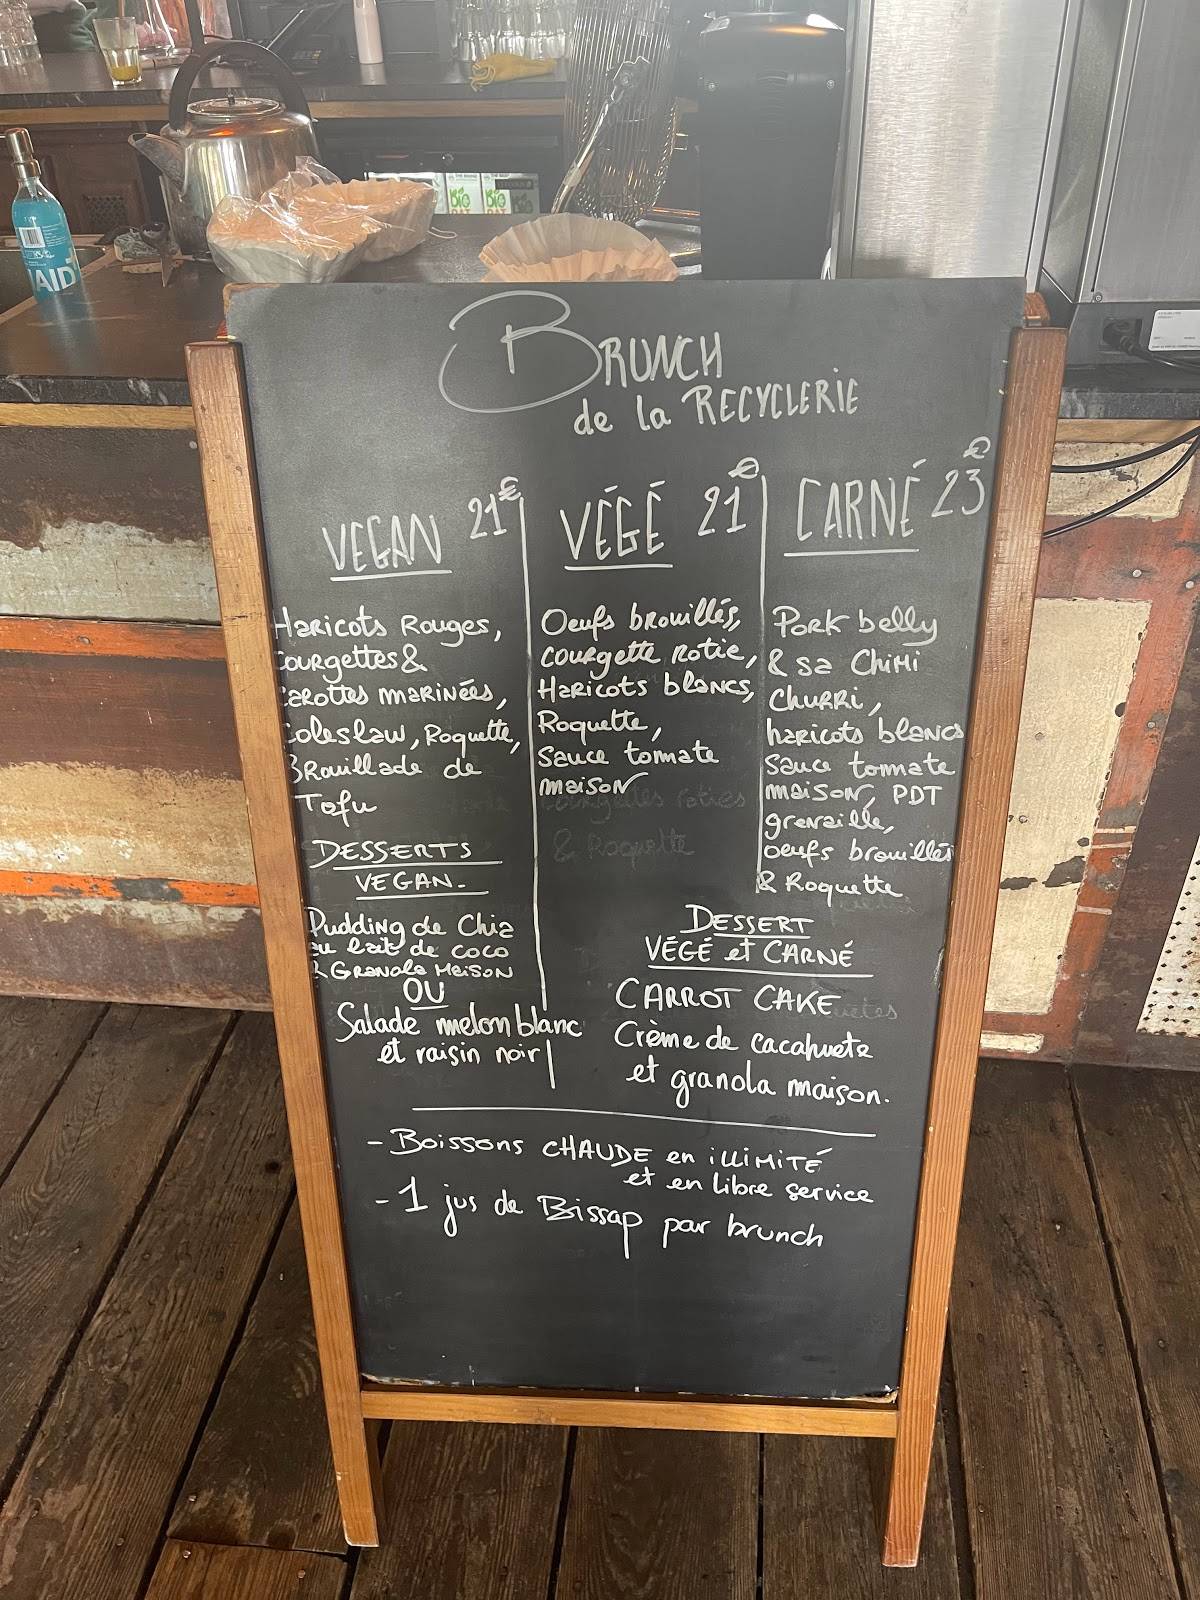 BRUNCH
de la RECYCLERIE
VEGAN 21€
Haricots Rouges,
Courgettes &
Carottes marinées,
Coleslaw, Roquette,
Brouillade de
Tofu
DESSERTS
VEGAN.
Pudding de Chia
au lait de coco
& Granola Maison
OU
Salade melon blanc
et raisin noir
VÉGÉ 21€
Oeufs brouillés,
courgette rotie,
Haricots blancs,
Roquette,
Sauce tomate
maison
Courgettes roties
& Roquette
CARNÉ 23€
Pork belly
& sa Chimi
Churri,
haricots blancs
sauce tomate
maison, PDT
grenaille,
oeufs brouillés
& Roquette
DESSERT
VÉGÉ et CARNÉ
CARROT CAKE
Crème de cacahuete
et granola maison.
- Boissons CHAUDE en illimité
et en libre service
- 1 jus de Bissap par brunch
BiO
BiO
AID